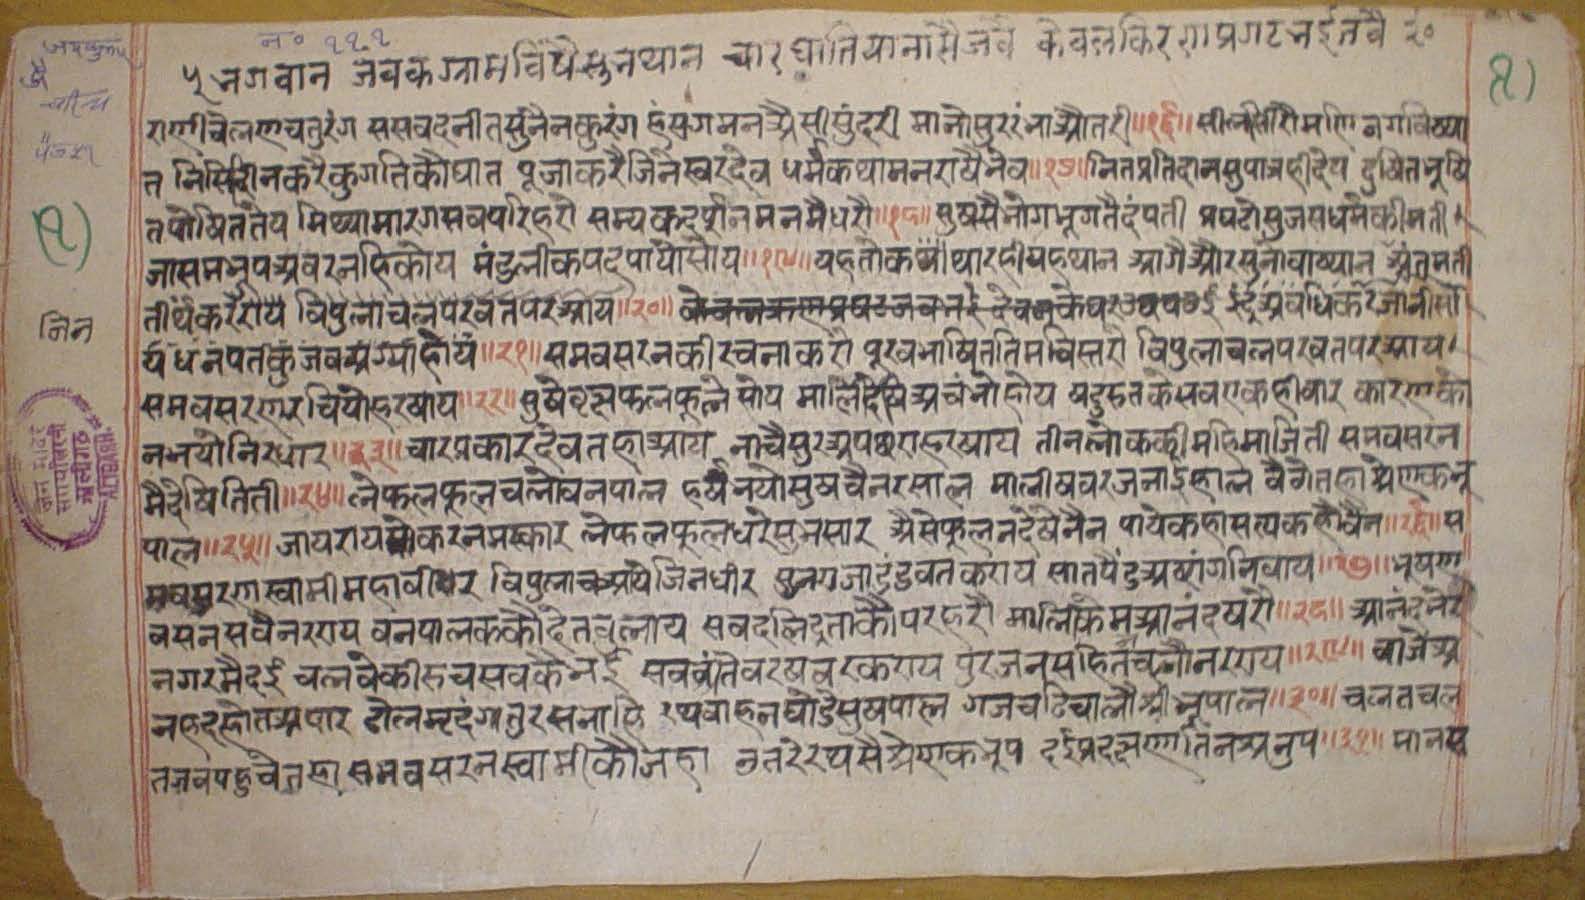 नं० १११
५ भगवान जबकग्नामविषैसुनथान चारघातियानासैजवै केवलकिरणप्रगटभईतवै २०
राणीचेलणाचतुरंग ससवदनीतसुंनैनकुरंग हंसगमनअैसीसुंदरी मानोसुररंनाऔतरी॥१६॥ सीलसिरोमणि जगविख्या
त निसिदीनकरैकुगतिकौघात पूजाकरैजिनेस्वरदेव धर्मकथामनराषैनेव॥१७॥नितप्रतिदानसुपात्रहीदेय दुषितभूषि
तपोषिततेय मिथ्यामारगसवपरिहरौ सम्यकदर्शनमनमैधरौ॥१८॥सुषसैभोगभूगतैदंपती प्रघटोसुजसधर्मकीमती
जासमभूपअवरनहिकोय मंडलीकपदपायोसोय॥१९॥यहतोकथाथारहीयहथान आगैऔरसुनोवाख्यान अंतमती
र्तीर्थंकरराय विपुलाचलपरवतपरआय॥२०॥ ईद्रअवधिकरजानीसो
य धनपतकुंजवअग्याहोय॥२१॥समवसरनकीरचनाकरो पूरवभाषिततिमविस्तरो विपुलाचलपरवतपरआय
समवसरणरचियोहरषाय॥२२॥सुषेवृछफलफूलेसोय मालिदेषिअचंभोहोय षटुरुतकेसवएकहीवार कारणको
नभयोनिरधार॥२३॥चारप्रकारदेवतहाआय नाचैसुरअपछराहरषाय तीनलोककीमहिमाजिती समवसरन
मैदेषितिती॥२४॥लेफलफूलचलोवनपाल हर्षभयोसुषवैनरसाल मालीषवरजनाईहाल वैगेतहाश्रेणकभू
पाल॥२५॥जायरायकोकरनमस्कार लेफलफूलधरेसुभसार अैसेफूलनदेषेनैन पायेकहासत्यकहौवैन॥२६॥स
मवसरणस्वामीमहावीर विपुलाचलआयेजिनधीर सुनराजाडंडवतकराय सातपैंडअष्टांगनिवाय॥२७॥भूषण
वसनसवैनरराय वनपालककौदेतवुलाय सवदलिद्रताकौपरहरौ मालिकेमआनंदषरौ॥२८॥आनंदभेरी
नगरमैदई चलवेकीरुचसवकैभई सववांतैवरषवरकराय पुरजनसहितचलौनरराय॥२९॥वाजेअ
नहदहोतअपार ढोलमृदंग तुरसनाहि रथवाहनघोडेसुषपाल गजचढिचालौश्रीभूपाल॥३०॥चलतचल
तजवपहुचेतहा समवसरनस्वामीकौजहा उतरेरथसैश्रेणकभूप दईप्रदक्षणातिनअनुप॥३१॥मानस
(१)
(१)
जिन
ALIGANJ